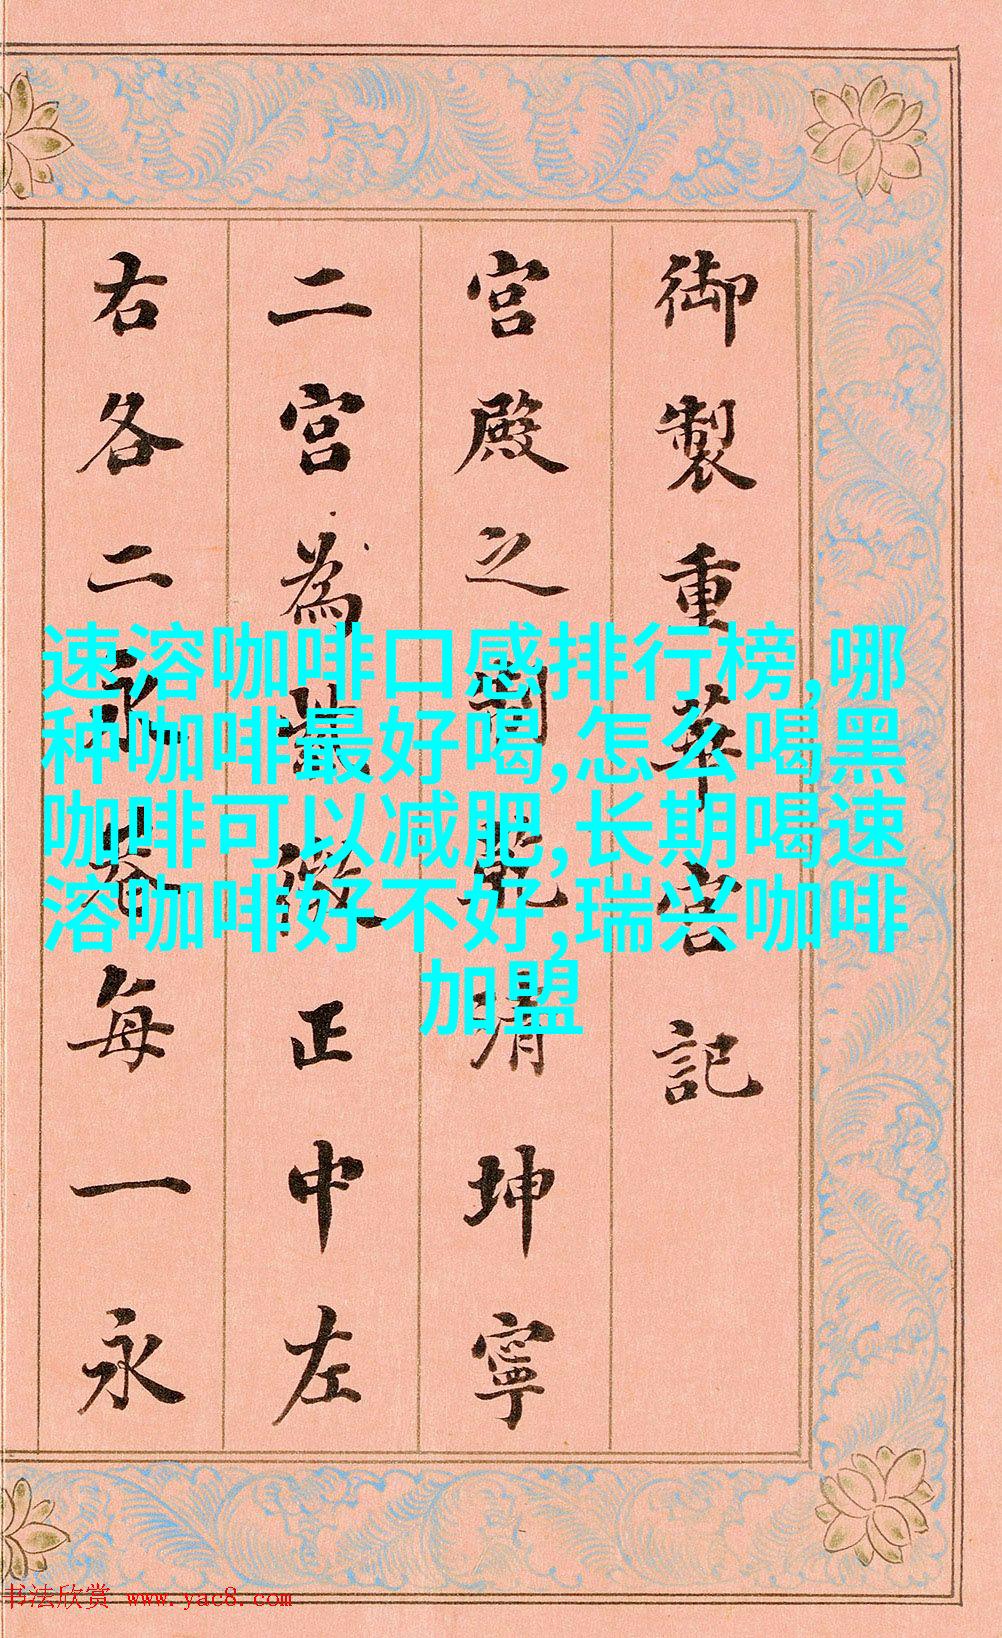 御製重華宮記
宮殿之制乾清坤寧
二宮為紫微正中左
右各二永巷每一永
速溶咖啡口感排行榜,哪
种咖啡最好喝,怎么喝黑
咖啡可以减肥,长期喝速
溶咖啡好不好,瑞兴咖啡
加盟
书法欣赏 www.yac8.com